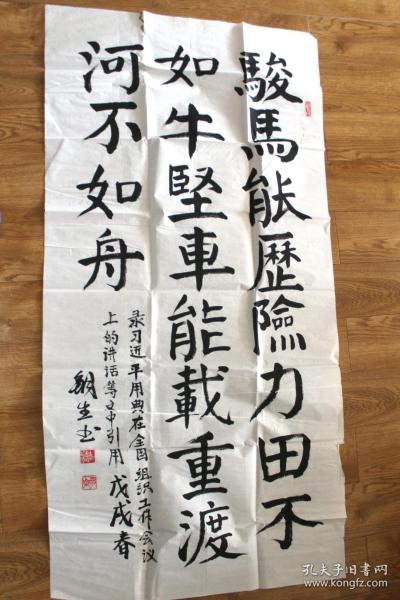 駿馬能歷險力田不
如牛堅車能載重渡
河不如舟
录习近平用典在全国组织工作会议
上的讲话等中引用 戊戌春
孔夫子旧书网
www.kongfz.com